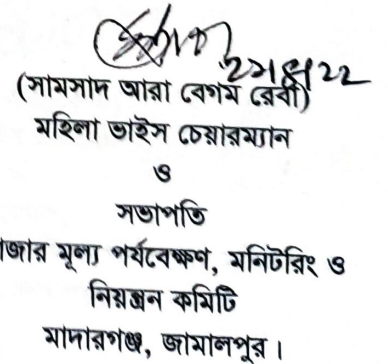 (সামসাদ আরা বেগম রেবী)
মহিলা ভাইস চেয়ারম্যান
ও
সভাপতি
বাজার মূল্য পর্যবেক্ষণ, মনিটরিং ও
নিয়ন্ত্রন কমিটি
মাদারগঞ্জ, জামালপুর।